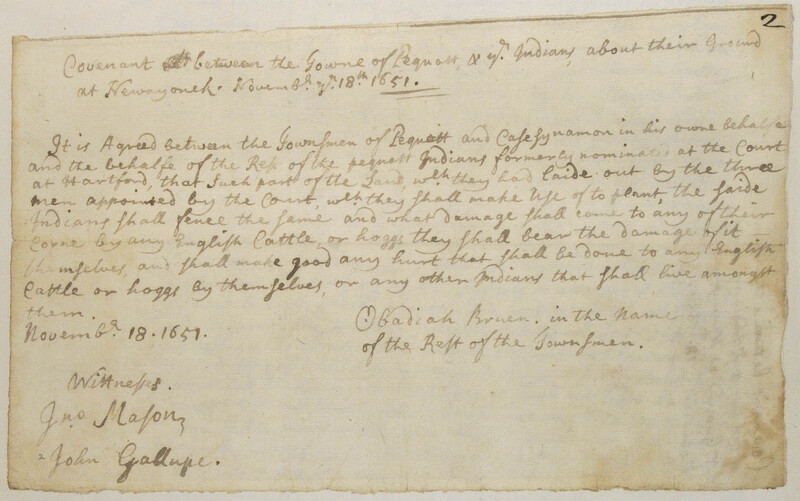 2
Covenant between the Towne of Pequott, & yᵉ Indians, about their Ground
at Newayonck. Novembʳ yᵉ 18ᵗʰ 1651.
It is Agreed between the Townsmen of Pequott and Casesynamon in his owne behalfe
and the behalfe of the Rest of the pequott Indians formerly nominated at the Court
at Hartford, that Such part of the Land, wᶜʰ they had laide out by the three
men appointed by the Court, wᶜʰ they shall make Use of to plant, the saide
Indians shall fence the same and what damage shall come to any of their
Corne by any English Cattle, or hoggs they shall bear the damage of it
themselves, and shall make good any hurt that shall be done to any English
Cattle or hoggs by themselves, or any other Indians that shall live amongst
them.
Novembʳ. 18. 1651.
Obadiah Bruen. in the Name
of the Rest of the Townsmen.
Wittnesses.
Jnᵒ Mason,
John Gallupe.